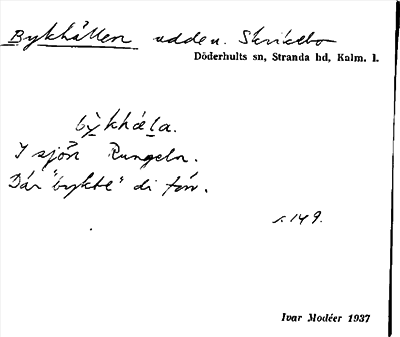 Bykhällen udde u. Skrikebo
Döderhults sn, Stranda hd, Kalm. l.
by̆khæla.
I sjön Rungeln.
Där "bykte" di förr.
s. 149.
Ivar Modéer 1937